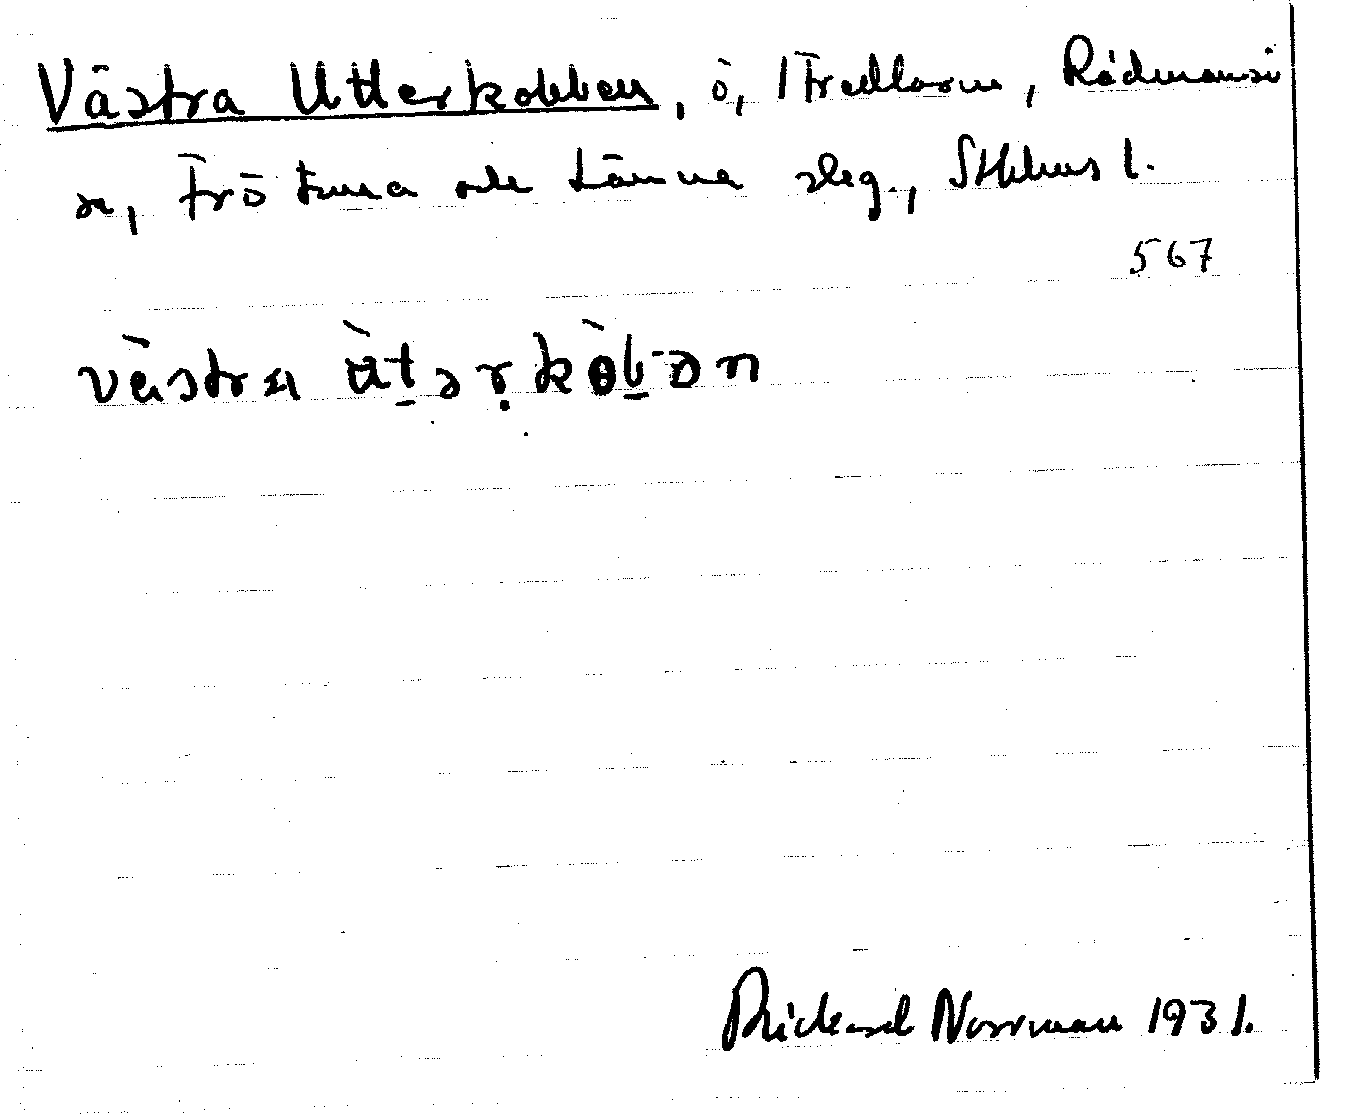 Västra Utterkobben, ö, i Fredlarna, Rådmansö
sn, Frötuna och Länna skeg., Sthlms l.
567
västra ùtərkòbən
Rickard Norrman 1931.